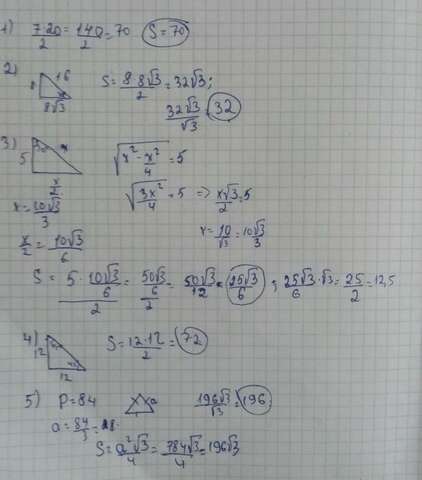 1) 7·20/2 = 140/2 = 70 S = 70
2) 8 16 8√3 S = 8·8√3/2 = 32√3;
32√3/√3 = 32
3) 5 x x/2 √(x² - x²/4) = 5
√(3x²/4) = 5 => x√3/2 = 5
x = 10√3/3 x = 10/√3 = 10√3/3
x/2 = 10√3/6
S = 5·10√3/6/2 = 50√3/6/2 = 50√3/12 = 25√3/6 ; 25√3/6·√3 = 25/2 = 12,5
4) 12 12 S = 12·12/2 = 72
5) P = 84 a 196√3/√3 = 196
a = 84/3 = 28
S = a²√3/4 = 784√3/4 = 196√3